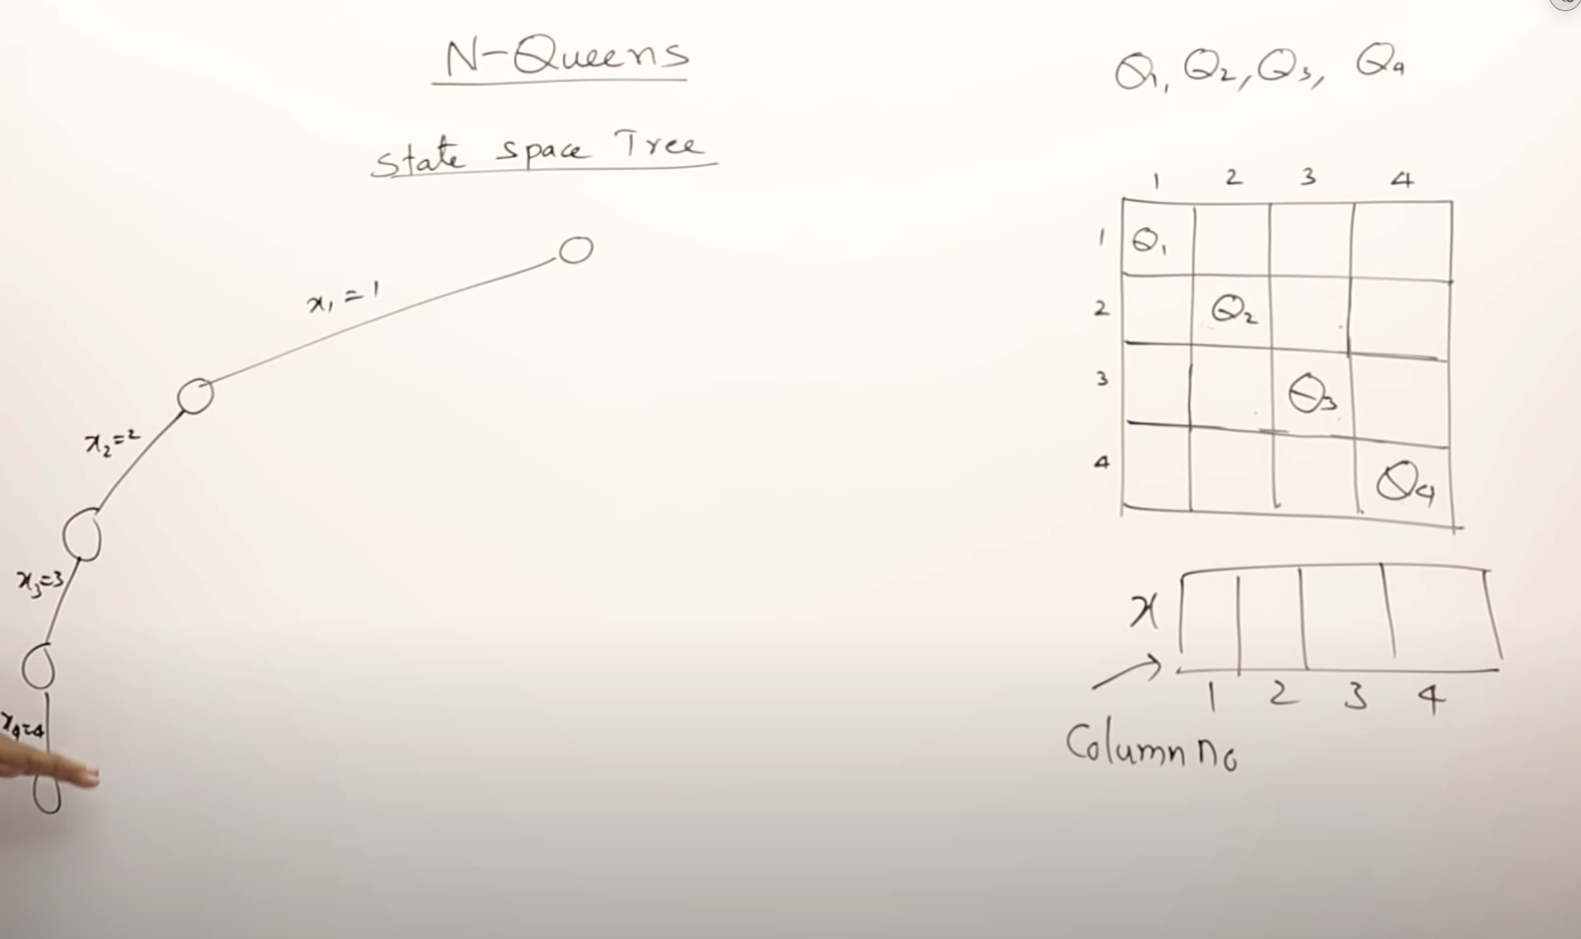 N-Queens
State Space Tree
x₁ = 1
x₂=2
x₃=3
x₄=4
Q₁, Q₂, Q₃, Q₄
1 2 3 4
1 Q₁
2 Q₂
3 Q₃
4 Q₄
x
1 2 3 4
Column no